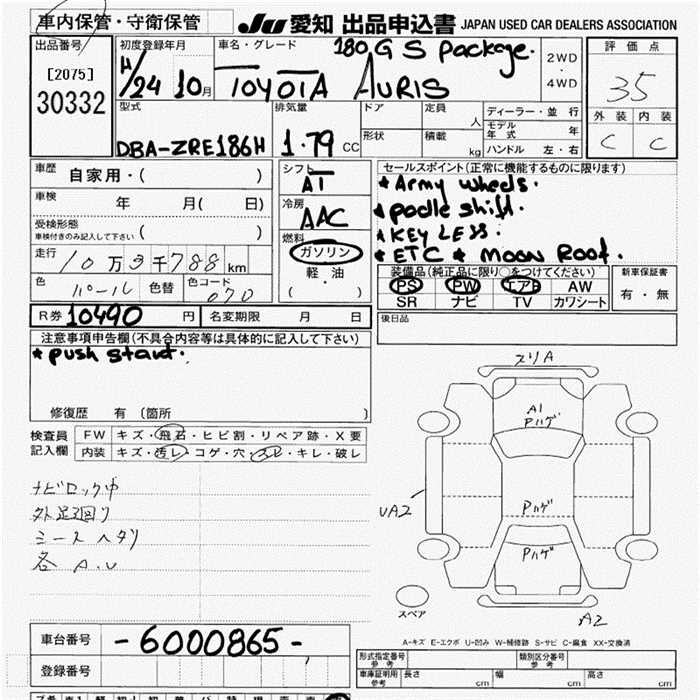 車内保管・守衛保管 JU 愛知 出品申込書 JAPAN USED CAR DEALERS ASSOCIATION
出品番号 初度登録年月 車名・グレード 180 G S package. 2WD ・ 4WD 評価点
[2075] 30332 H/24 10月 TOYOTA AURIS 35
型式 排気量 ドア 定員 人 ディーラー・並行 外装 内装
DBA-ZRE186H 1.79 CC 形状 積載 kg モデル年式 年 C C
ハンドル 左・右
車歴 自家用・( ) シフト AT セールスポイント(正常に機能するものに限ります)
車検 年 月( 日) 冷房 AAC ★Army wheels.
受検形態 ( ) ★padle shift.
車検付きのみ記入して下さい 燃料 ★KEY LESS.
走行 10万3千788km ガソリン ★ETC ★ Moon Roof.
色 パール 色替 色コード 070 軽・油 装備品(純正品に限り○をつけてください) 新車保証書
( ・ ) PS PW エアB AW 有・無
SR ナビ TV カワシート
R券 10490 円 名変期限 月 日 後日品
注意事項申告欄(不具合内容等は具体的に記入して下さい)
★push start.
修復歴 有 (箇所 )
検査員記入欄 FW キズ・飛石・ヒビ割・リペア跡・X要
内装 キズ・汚レ・コゲ・穴・スレ・キレ・破レ
ナビロック中
外足廻り
ミースヘタリ
各 A.U
スリA
A1
Pハゲ
UA2
Pハゲ
Pハゲ
スペア
A2
A-キズ E-エクボ U-凹み W-補修跡 S-サビ C-腐食 XX-交換済
車台番号 -6000865-
登録番号
形式指定番号 参考 類別区分番号 参考
車庫証明用 参考 長さ cm 幅 cm 高さ cm